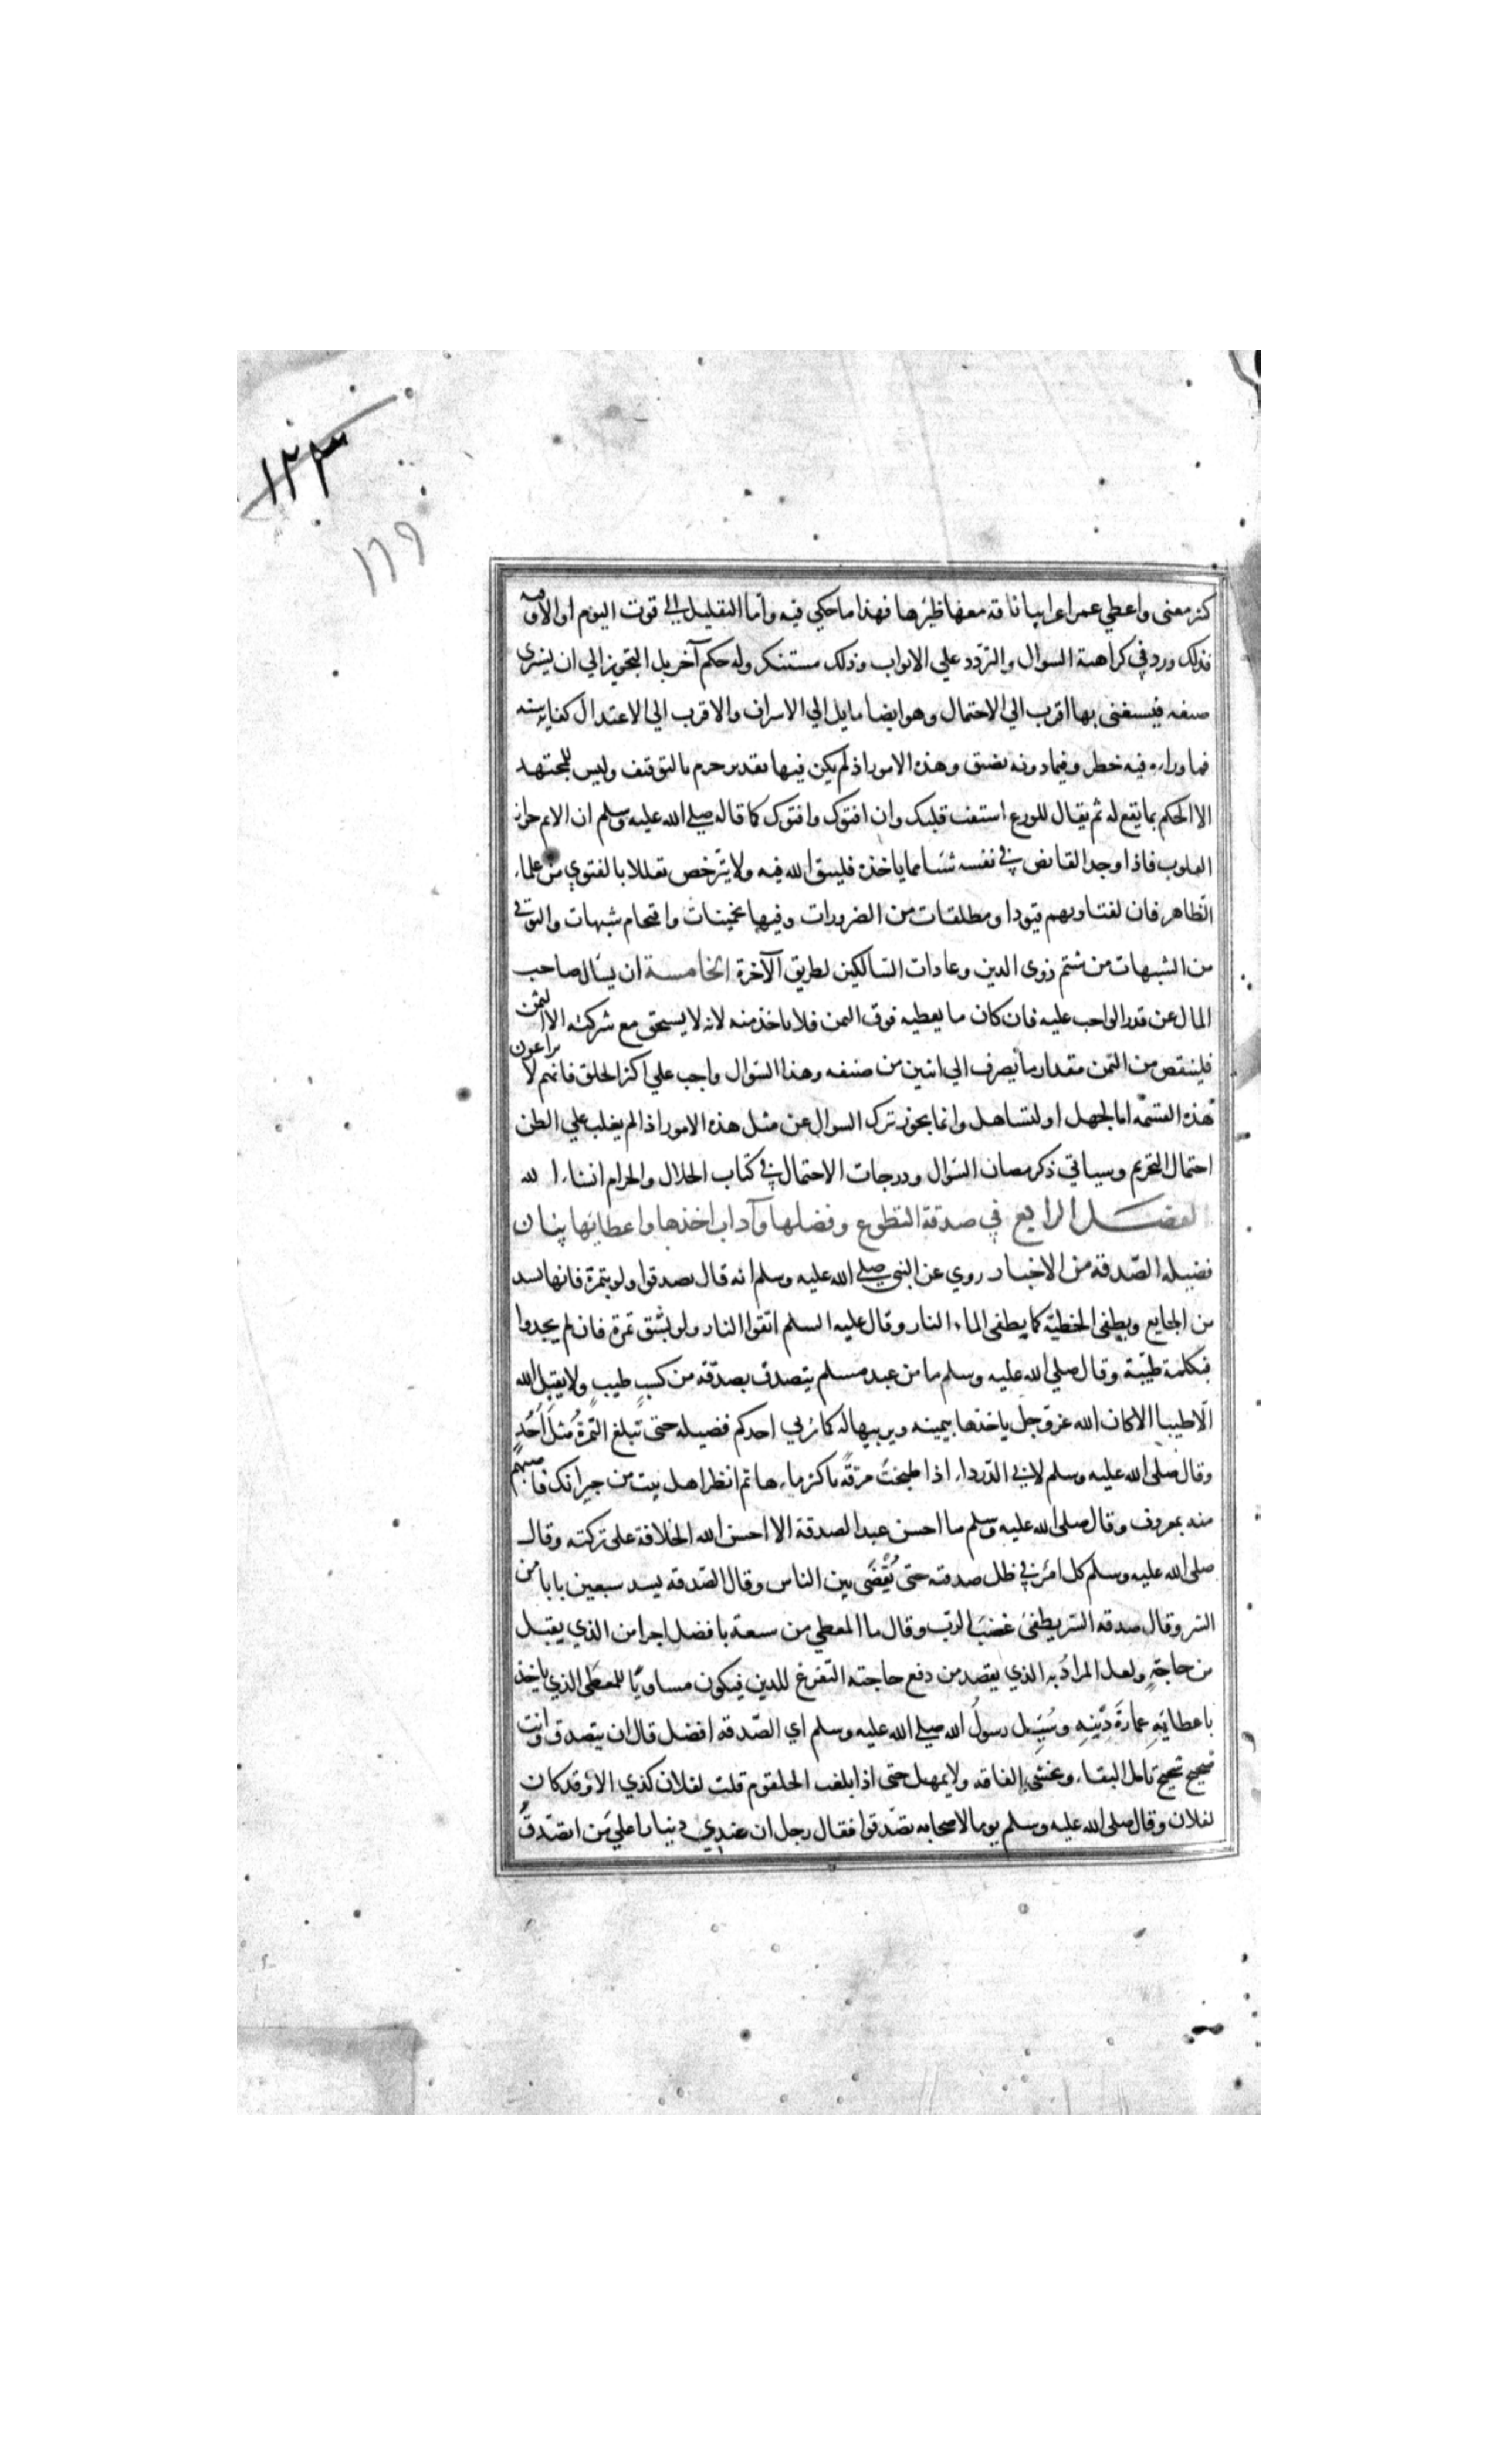 ١٢٣
١٢٩
كنز معنى واعطي عمر اعرابيا ناقة معها ظئر لها فهذا ما حكي فيه واما التقليل الي قوت اليوم او الاوقيه
فذلك ورد في كراهية السوال والتردد علي الابواب وذلك مستنكر وله حكم آخر بل التجويز الي ان يشتري
ضيعة فيستغني بها اقرب الي الاحتمال وهو ايضا مايل الي الاسراف والاقرب الي الاعتدال كفاية سنه
فما وراءه فيه خطر وفيما دونه تضيق وهذه الامور اذ لم يكن فيها تقدير جزم بالتوقيف وليس للمجتهد
الا الحكم بما يقع له ثم يقال للورع استفت قلبك وان افتوك وافتوك كما قاله صلي الله عليه وسلم ان الاثم حواز
القلوب فاذا وجد القابض في نفسه شئا مما ياخذه فليتق الله فيه ولا يترخص تعللا بالفتوي من علماء
الظاهر فان لفتاويهم قيودا ومطلقات من الضرورات وفيها تخمينات واقتحام شبهات والتوقي
من الشبهات من شيم ذوى الدين وعادات السالكين لطريق الآخرة الخامسة ان يسال صاحب
المال عن قدر الواجب عليه فان كان ما يعطيه فوق الثمن فلا ياخذ منه لانه لا يستحق مع شركته الا الثمن
فلينتقص من الثمن مقدار ما يصرف الي اثنين من صنفه وهذا السوال واجب علي اكثر الخلق فانهم لا يراعون
هذه القسمة اما لجهل او لتساهل وانما يجوز ترك السوال عن مثل هذه الامور اذا لم يغلب علي الظن
احتمال التحريم وسياتي ذكر مظان السوال ودرجات الاحتمال في كتاب الحلال والحرام انشاء الله
الفصل الرابع في صدقة التطوع وفضلها وآداب اخذها واعطائها بيان
فضيلة الصدقة من الاخبار روي عن النبي صلي الله عليه وسلم انه قال تصدقوا ولو بتمرة فانها تسد
من الجايع ويطفى الخطية كما يطفى الماء النار وقال عليه السلم اتقوا النار ولو بشق تمرة فان لم يجدوا
فبكلمة طيبة وقال صلي الله عليه وسلم ما من عبد مسلم يتصدق بصدقة من كسبٍ طيبٍ ولا يقبل الله
الا طيبا الا كان الله عز وجل ياخذها بيمينه ويربيها له كما يربي احدكم فصيله حتى تبلغ التمرةُ مثلَ اُحُدٍ
وقال صلى الله عليه وسلم لابي الدرداء اذا طبخت مرقةً فاكثر ماءها ثم انظر اهل بيت من جيرانك فاصبهم
منه بمعروف وقال صلى الله عليه وسلم ما احسن عبد الصدقة الا احسن الله الخلافة على تركته وقال
صلى الله عليه وسلم كل امرئ في ظل صدقته حتى يُقضَى بين الناس وقال الصدقه يسد سبعين بابا من
الشر وقال صدقه السر يطفئ غضبَ الرب وقال ما المعطي من سعة بافضل اجرا من الذي يقبل
من حاجةٍ ولعل المراد به الذي يقصد من دفع حاجته التفرغ للدين فيكون مساويًا للمعطى الذي ياخذ
باعطايهِ عمارةَ دِينِهِ وسُيِل رسول الله صلي الله عليه وسلم اي الصدقة افضل قال ان يتصدق وانت
صحيح شحيح تامل البقاء وتخشى الفاقه ولا يمهل حتى اذا بلغت الحلقوم قلت لفلان كذي الا وقد كان
لفلان وقال صلى الله عليه وسلم يوما لاصحابه تصدقوا فقال رجل ان عندي دينارا علي من اتصدق